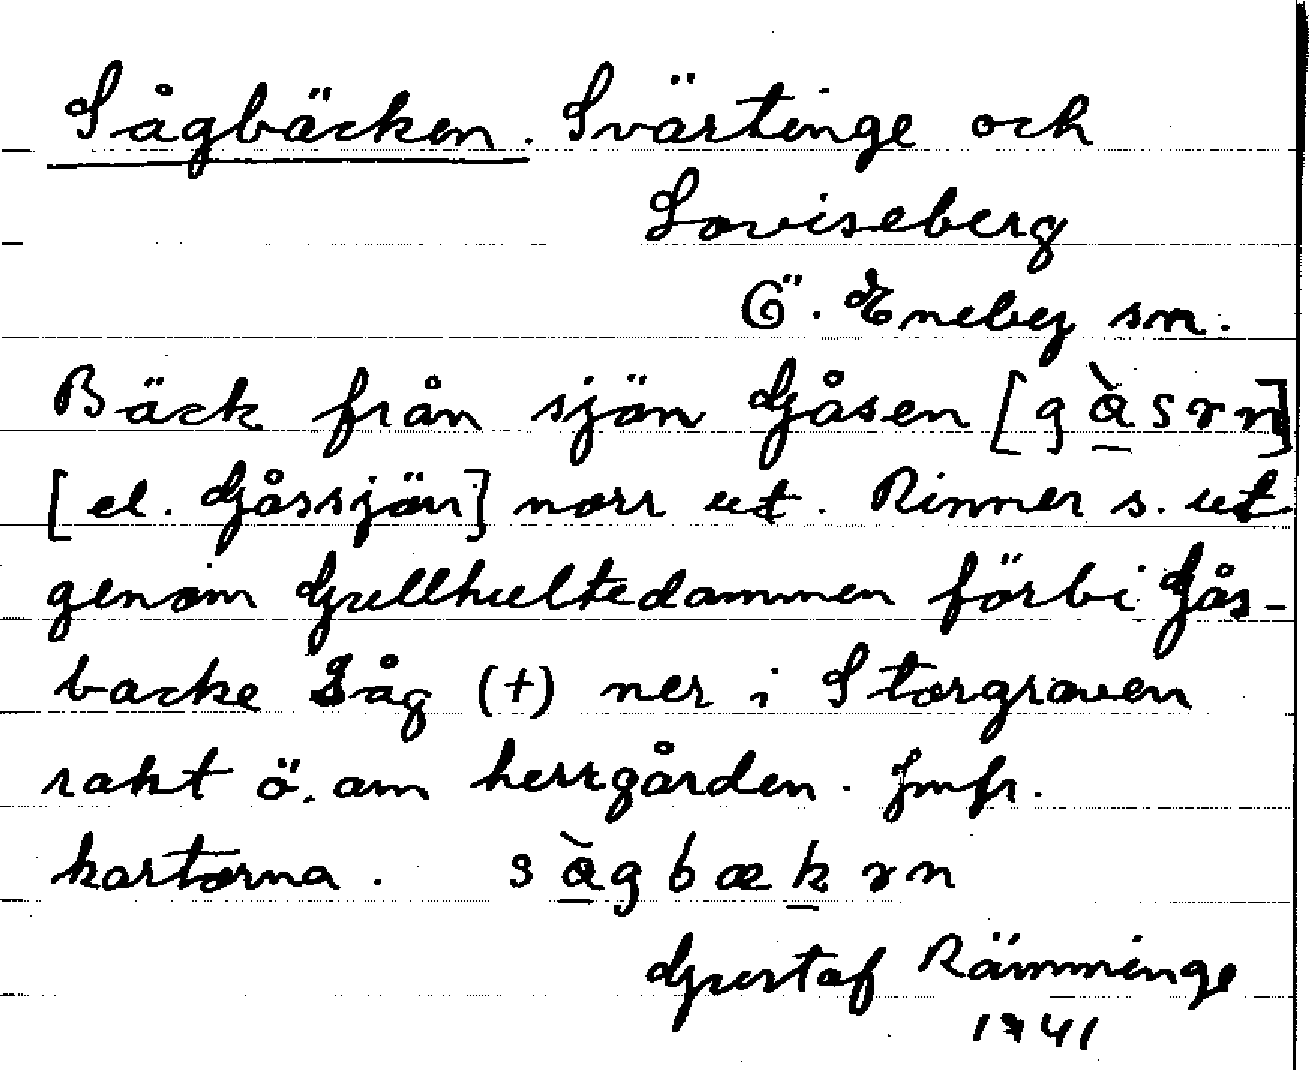 Sågbäcken. Svärtinge och
Loviseberg
Ö. Eneby sn.
Bäck från sjön Gåsen [gàsrn]
[el. Gåssjön] norr ut. Rinner s. ut
genom Gullhultedammen förbi Gås-
backe Såg (+) ner i Storgraven
rakt ö. om herrgården. Jmfr.
kartorna. sàgbækrn
Gustaf Rämminge